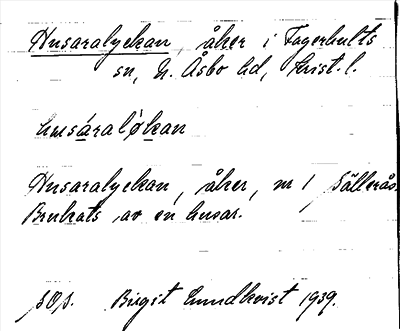 Husaralyckan, åker i Fagerhults
sn, N. Åsbo hd, Krist. l.
husáralỳkan
Husaralyckan, åker, nr 1 Sällerås.
Brukats av en husar.
SOS. Birgit Lundkvist 1939.